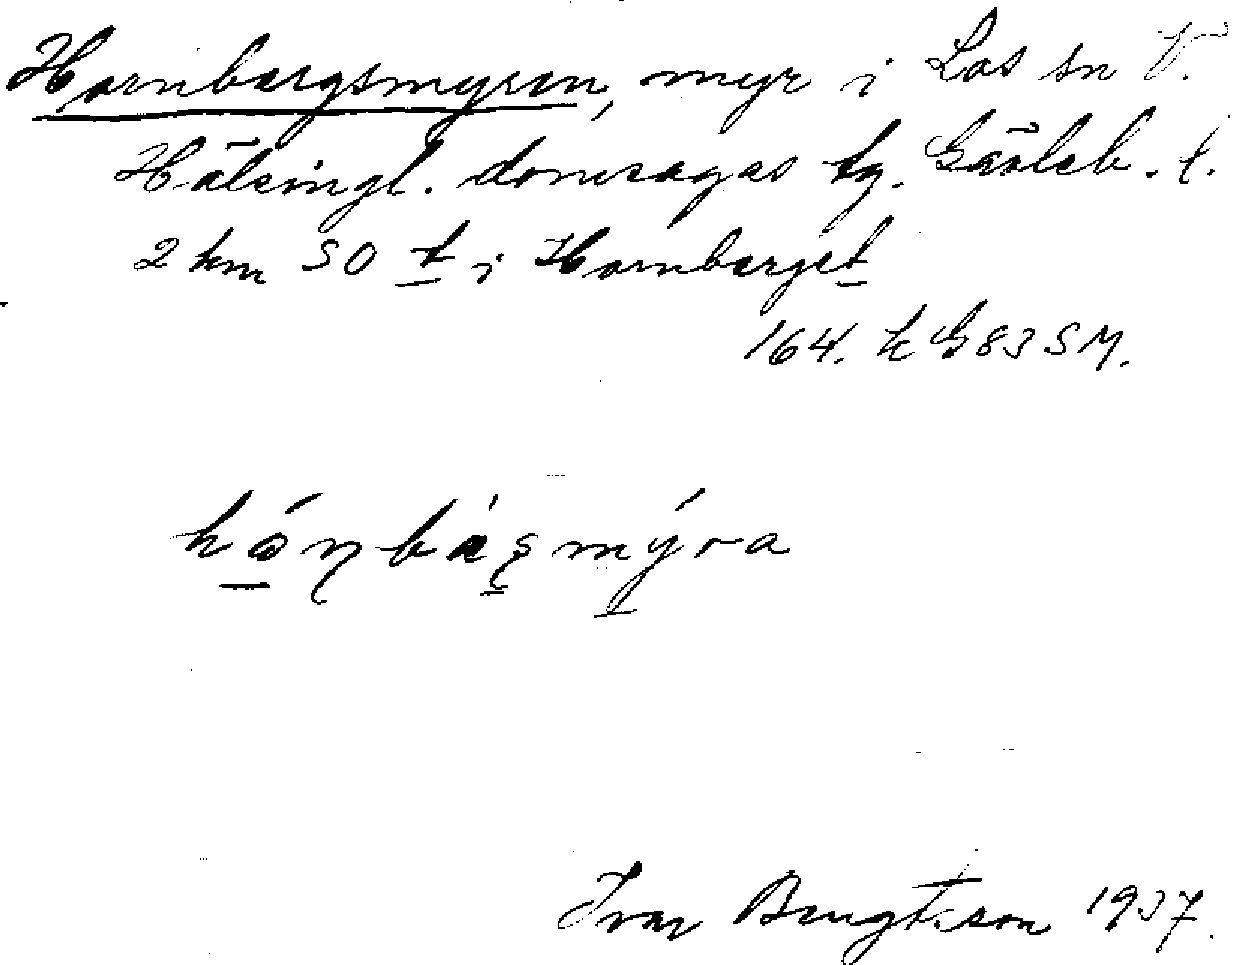 Hornbergsmyren, myr i Los sn V.
Hälsingl. domsagas tg. Gävleb. l.
2 km SO t i Hornberget
164. k G83 SM.
Ivar Bengtsson 1937.